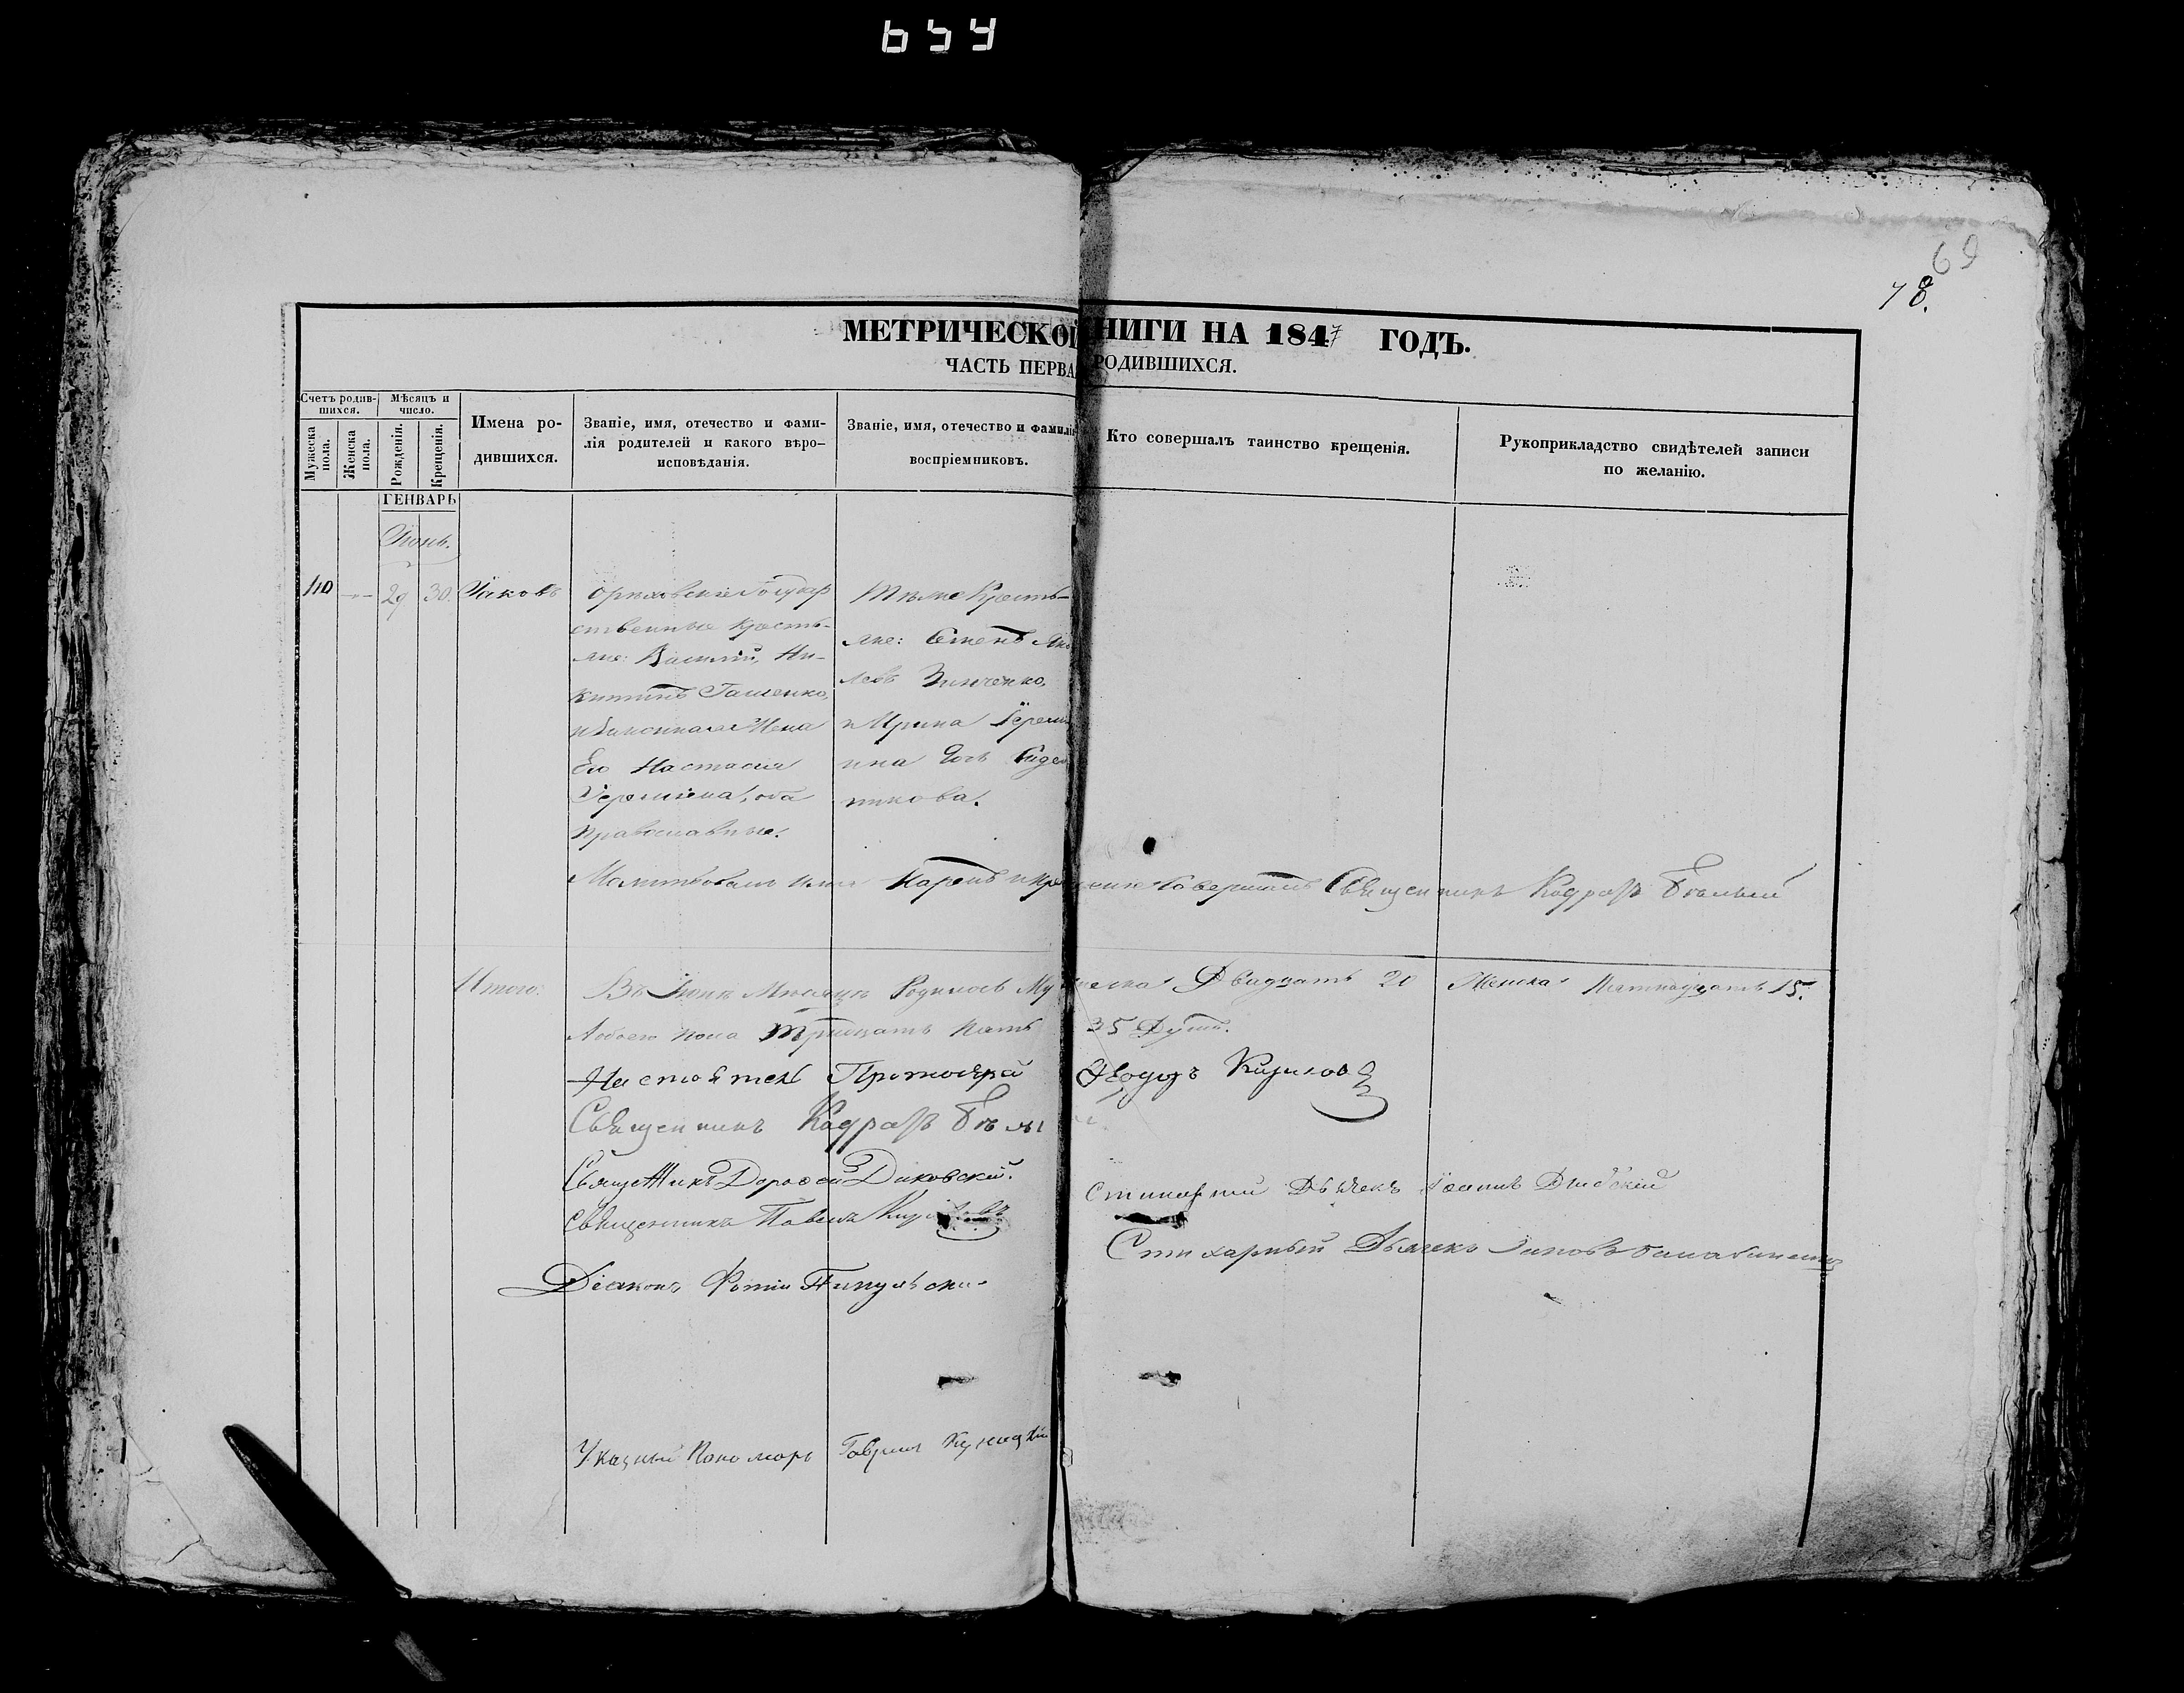 654
69
78.
МЕТРИЧЕСКОЙ КНИГИ НА 1847 ГОДЪ.
ЧАСТЬ ПЕРВА РОДИВШИХСЯ.
Счетъ родив-
шихся.
Мѣсяцъ и
число.
Мужеска
пола.
Женска
пола.
Рожденія.
Крещенія.
Имена ро-
дившихся.
Званіе, имя, отечество и фами-
лія родителей и какого вѣро-
исповѣданія.
Званіе, имя, отечество и фамилія
воспріемниковъ.
Кто совершалъ таинство крещенія.
Рукоприкладство свидѣтелей записи
по желанію.
ГЕНВАРЬ
Іюнь.
110 — 29 30 Іаковъ
Орѣховскіе Государ
ственные Кресть-
яне: Василій, Ни-
китинъ Гашенко,
и Законная Жена
Его Настасія
Іеремiева, оба
Православные.
Тѣ же Кресть-
яне: Семенъ Яко
левъ Зинченко,
и Ирина Іерем
ина Дочь
никова.
Молитвовалъ имя Нарекъ и Крещеніе Совершилъ Священникъ Кодратъ Бѣлый
Итого: Въ Іюнѣ Мѣсяцѣ Родилось Мужеска Двадцать 20 Женска Пятнадцать 15.
Обоего пола Тридцать Пять 35 Душъ.
Настоятел Протоіерей Ѳеодоръ Кириловъ
Священникъ Кодратъ Бѣлы
Священникъ Дороѳей Диковскій.
Священникъ Павелъ
Діаконъ Фотій
Стихарный Дьячекъ Іоаннъ
Стихарный Дьячекъ
Указный Пономарь Гавриил